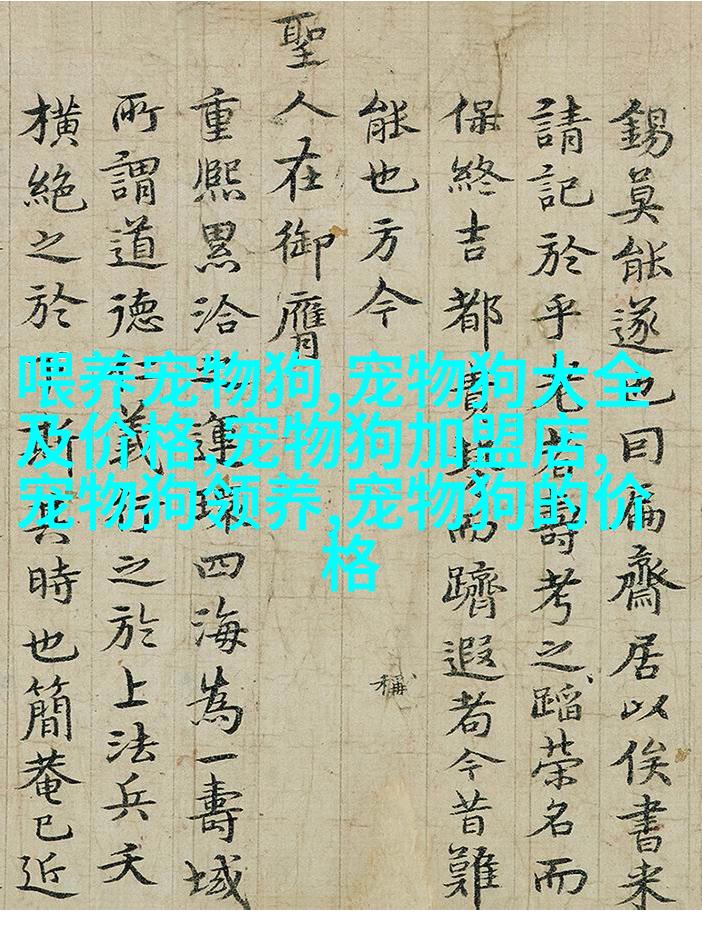 錫莫能遂也曰扁齋居以俟書来
請記於乎 壽考之蹈榮名而
保終吉都貴 而躋遐耇今昔難
能也方今 稱
聖人在御膺
重熙累洽 運 四海為一壽域
所謂道德 義 之於上法兵夭
橫絶之於 斯其時也簡菴已近
喂养宠物狗,宠物狗大全
及价格,宠物狗加盟店,
宠物狗领养,宠物狗的价
格